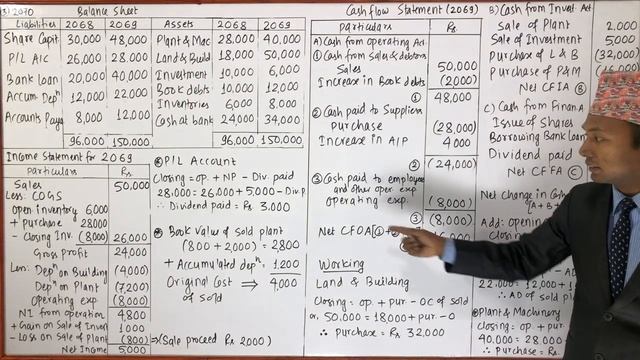 3) 2070
Balance Sheet
Liabilities 2068 2069 Assets 2068 2069
Share Capit 30,000 48,000 Plant & Mac 28,000 40,000
P/L A/C 26,000 28,000 Land & Build 18,000 50,000
Bank Loan 20,000 40,000 Investment 10,000 6,000
Accum. Depⁿ 12,000 22,000 Book debts 10,000 12,000
Inventories 6,000 8,000
Accounts Paya 8,000 12,000 Cash at bank 24,000 34,000
96,000 150,000 96,000 150,000
Income Statement for 2069
Particulars Rs.
Sales 50,000
Less: COGS
Open inventory 6,000
+ Purchase 28,000
- Closing Inv. (8,000) 26,000
Gross Profit 24,000
Less: Depⁿ on Building (4,000)
Depⁿ on Plant (7,200)
Operating exp (8,000)
NI from operation 4,800
+ Gain on Sale of Invest 1,000
- Loss on Sale of Plant (800) ⇒ (Sale proceed Rs 2000)
Net Income 5,000
P/L Account
Closing = op. + NP - Div. paid
28,000 = 26,000 + 5,000 - Div. P
∴ Dividend paid = Rs 3,000
Book value of sold plant
(800 + 2,000) = 2,800
+ Accumulated depⁿ = 1,200
Original Cost of sold ⇒ 4,000
Cash flow Statement (2069)
Particulars Rs.
A) Cash from Operating Act
① Cash from Sales & debtors
Sales 50,000
Increase in Book debts (2,000)
① 48,000
② Cash paid to Suppliers
Purchase (28,000)
Increase in A/P 4,000
② (24,000)
③ Cash paid to employees
and other oper. exp
Operating exp. (8,000)
③ (8,000)
Net CFOA [①
Working
Land & Building
Closing = op. + pur. - OC of sold
or, 50,000 = 18,000 + pur. - 0
∴ Purchase = Rs 32,000
B) Cash from Invest. Act
Sale of Plant 2,000
Sale of Investment 5,000
Purchase of L & B (32,000)
Purchase of P&M
Net CFIA Ⓑ
C) Cash from Financ. A
Issue of Shares
Borrowing Bank Loan
Dividend paid
Net CFFA Ⓒ
Net Change in Cash
[A + B
Add: Opening
Closing
22,000 = 12,000 +
∴ AD of Sold pl
Plant & Machinery
Closing = op. + pur. -
40,000 = 28,000
∴ Purchase = Rs.